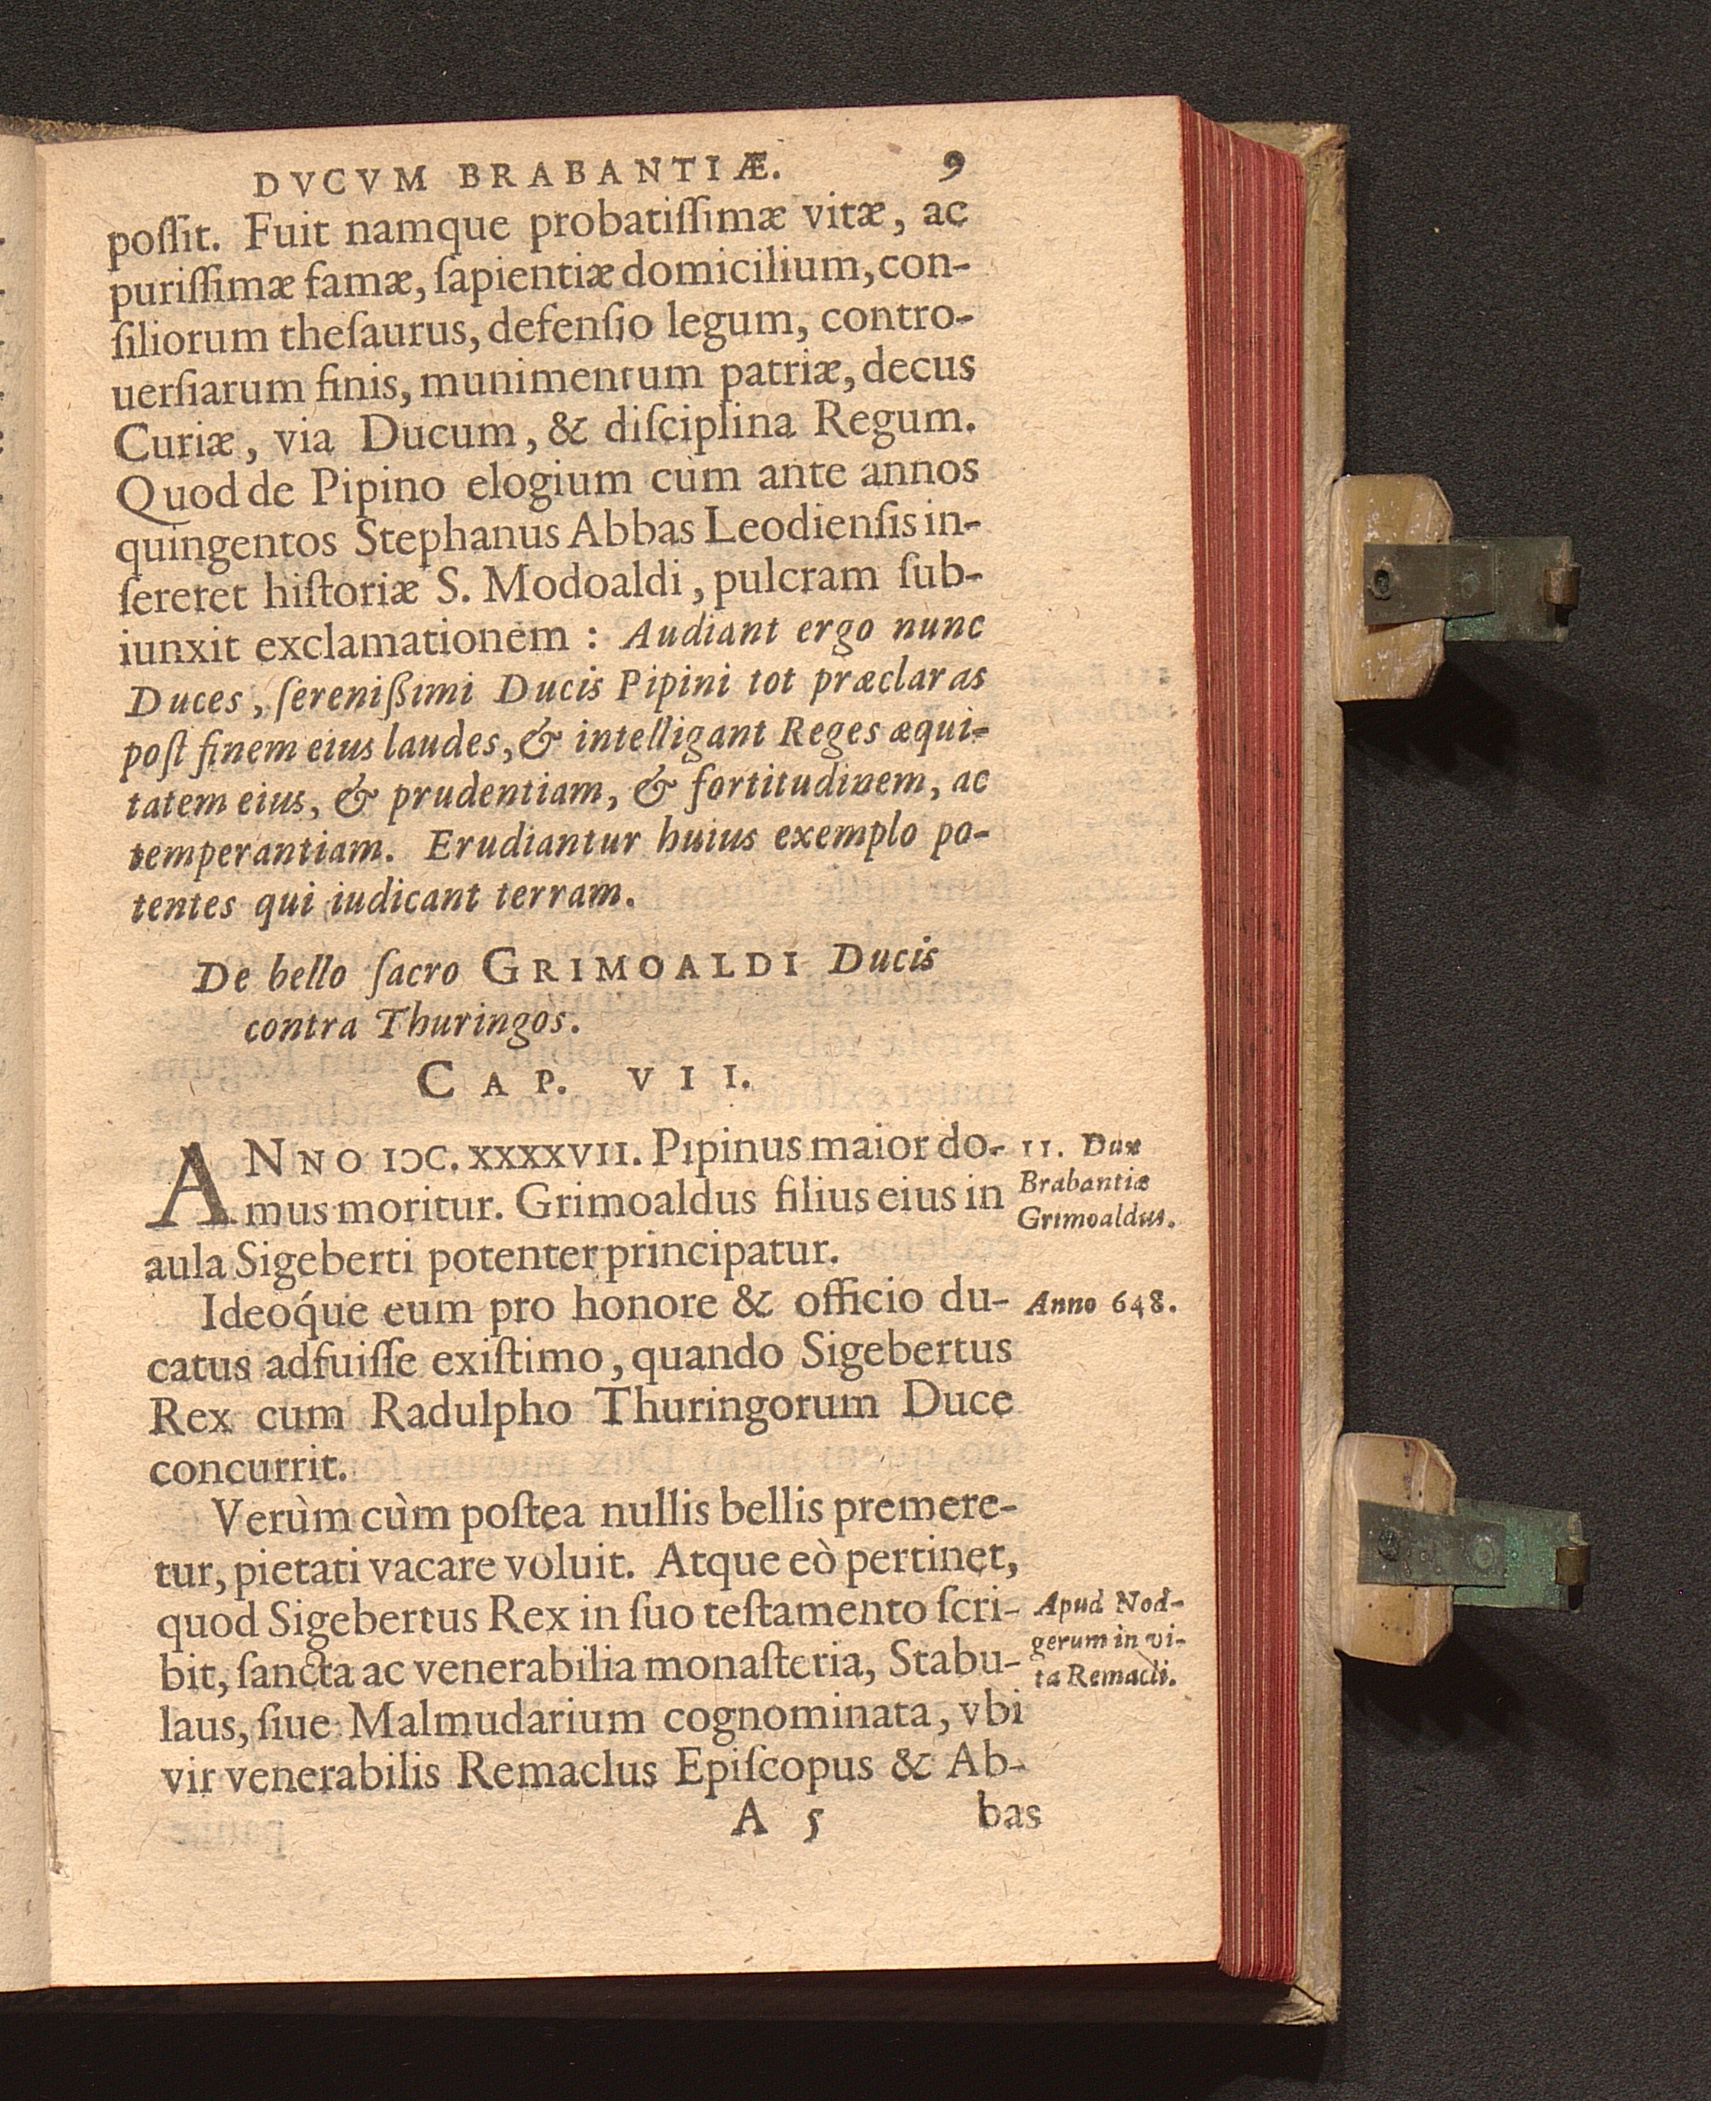 DVCVM BRABANTIÆ. 9
poſſit. Fuit namque probatiſſimæ vitæ, ac
puriſſimæ famæ, ſapientiæ domicilium, con-
ſiliorum theſaurus, defenſio legum, contro-
uerſiarum finis, munimentum patriæ, decus
Curiæ, via Ducum, & diſciplina Regum.
Quod de Pipino elogium cùm ante annos
quingentos Stephanus Abbas Leodienſis in-
ſereret hiſtoriæ S. Modoaldi, pulcram ſub-
iunxit exclamationem : Audiant ergo nunc
Duces, ſerenißimi Ducis Pipini tot præclaras
poſt finem eius laudes, & intelligant Reges æqui-
tatem eius, & prudentiam, & fortitudinem, ac
temperantiam. Erudiantur huius exemplo po-
tentes qui iudicant terram.
De bello ſacro GRIMOALDI Ducis
contra Thuringos.
CAP. VII.
ANNO IↃC. XXXXVII. Pipinus maior do-
mus moritur. Grimoaldus filius eius in
aula Sigeberti potenter principatur.
II. Dux
Brabantiæ
Grimoaldus.
Ideoq́ue eum pro honore & officio du-
catus adfuiſſe exiſtimo, quando Sigebertus
Rex cum Radulpho Thuringorum Duce
concurrit.
Anno 648.
Verùm cùm poſtea nullis bellis premere-
tur, pietati vacare voluit. Atque eò pertinet,
quod Sigebertus Rex in ſuo teſtamento ſcri-
bit, ſancta ac venerabilia monaſteria, Stabu-
laus, ſiue Malmudarium cognominata, vbi
vir venerabilis Remaclus Epiſcopus & Ab-
Apud Nod-
gerum in vi-
ta Remacli.
A 5 bas